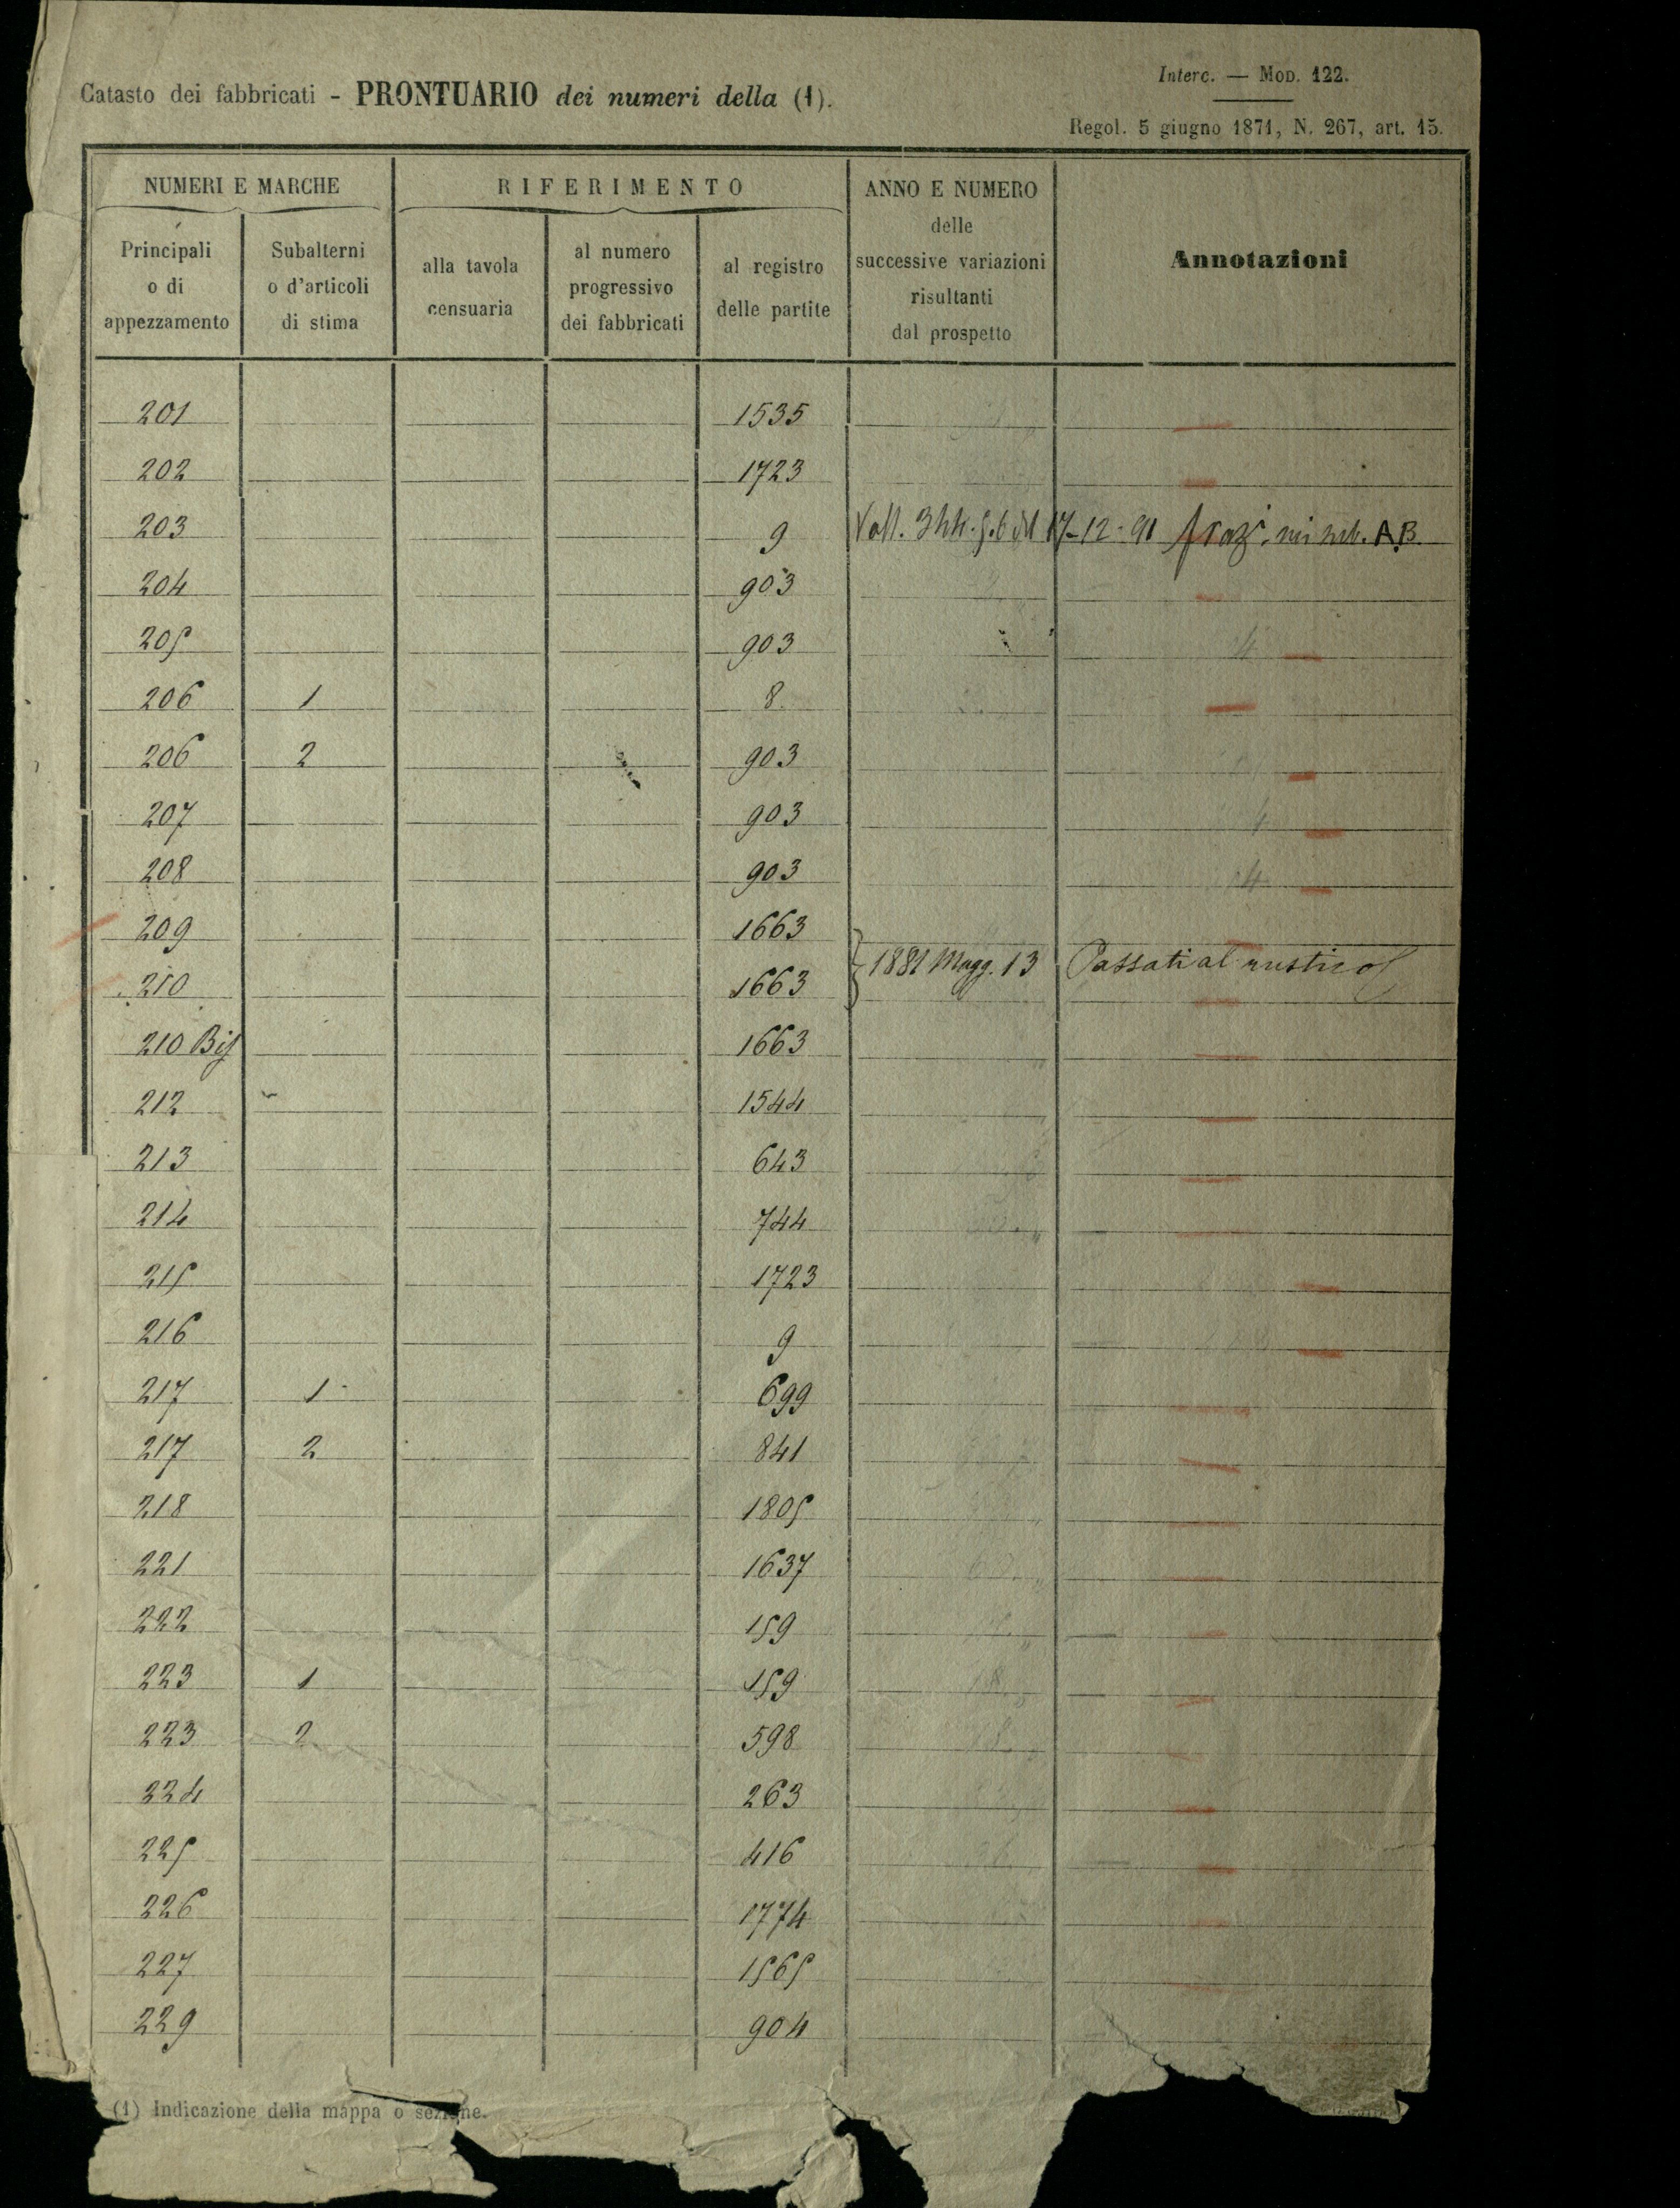 Catasto dei fabbricati - PRONTUARIO dei numeri della (1).
Interc. — Mod. 122.
Regol. 5 giugno 1871, N. 267, art. 15.
NUMERI E MARCHE
RIFERIMENTO
ANNO E NUMERO
delle
successive variazioni
risultanti
dal prospetto
Annotazioni
Principali
o di
appezzamento
Subalterni
o d'articoli
di stima
alla tavola
censuaria
al numero
progressivo
dei fabbricati
al registro
delle partite
201 1535
202 1723
203 9 17-12-91 A.B.
204 903
205 903
206 1 8
206 2 903
207 903
208 903
209 1663
1881 Magg. 13 Passati al rustico
210 1663
210 Bis 1663
212 1544
213 643
214 744
215 1723
216 9
217 1 699
217 2 841
218 1805
221 1637
222 159
223 1 159
223 2 598
224 263
225 416
226 1774
227 1565
229 904
(1) Indicazione della mappa o sezione.